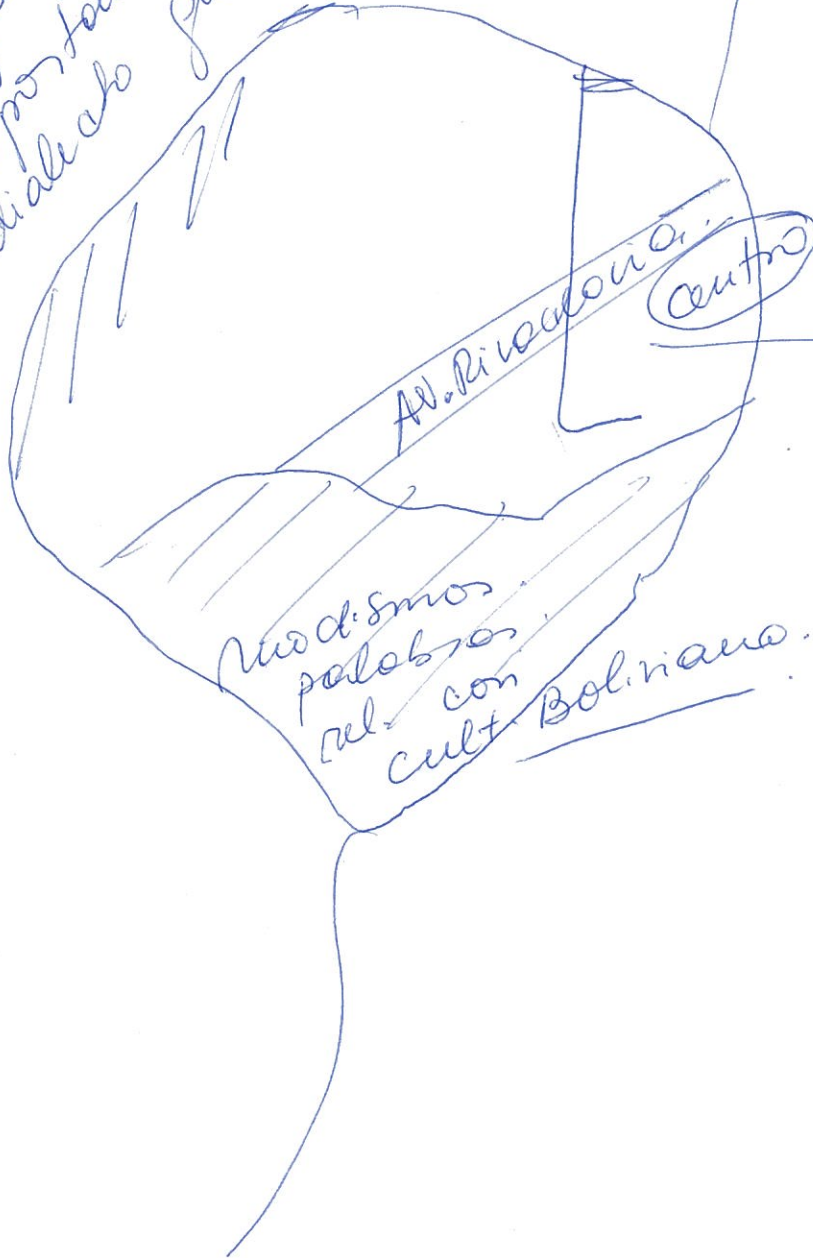 dialecto
Av. Rivadavia.
centro
modismos
palabras
rel. con
cult. Boliviana.